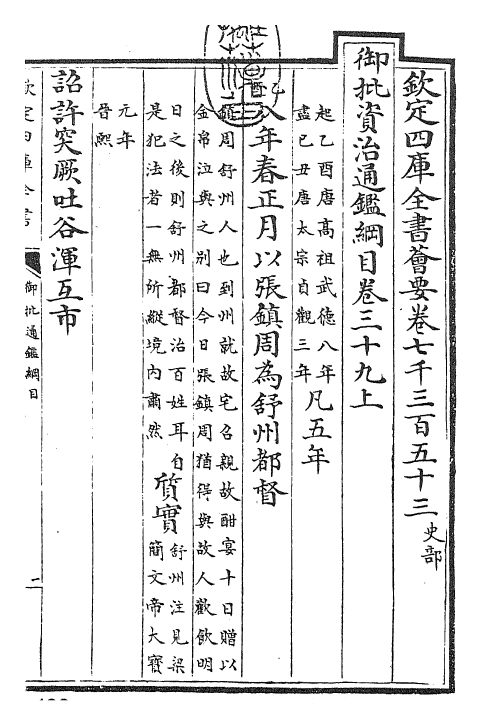 欽定四庫全書薈要卷七千三百五十三 史部
御批資治通鑑綱目卷三十九上
起乙酉唐髙祖武徳八年
盡己丑唐太宗貞觀三年
凡五年
乙酉
八年春正月以張鎮周為舒州都督
鎮周舒州人也到州就故宅召親故酣宴十日贈以
金帛泣與之别曰今日張鎮周猶得與故人歡飲明
日之後則舒州都督治百姓耳自
是犯法者一無所縱境内肅然
質實
舒州注見梁
簡文帝大寳
元年
晉熙
詔許突厥吐谷渾互市
欽定四庫全書
御批通鑑綱目